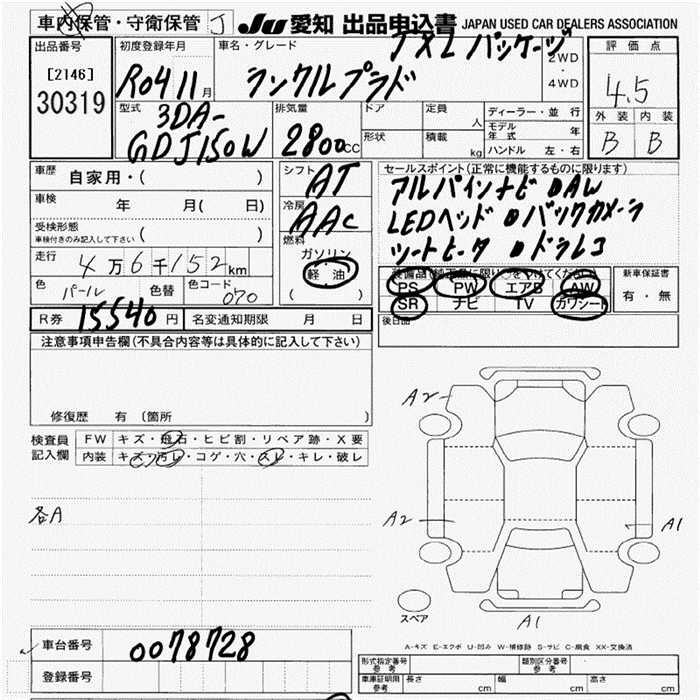 車内保管・守衛保管 J JU 愛知 出品申込書 JAPAN USED CAR DEALERS ASSOCIATION
出品番号 初度登録年月 車名・グレード TXL パッケージ 2WD ・ 4WD 評価点
[2146] R04 11月 ランクルプラド 4.5
30319 型式 3DA- 排気量 ドア 定員 人 ディーラー・並行 外装 内装
GDJ150W 2800cc 形状 積載 kg モデル年式 年 B B
ハンドル 左・右
車歴 自家用・( ) シフト AT セールスポイント(正常に機能するものに限ります)
車検 年 月( 日) 冷房 AAC アルパインナビ AW
受検形態 車検付きのみ記入して下さい ( ) LEDヘッド バックカメラ
燃料 ガソリン シートヒータ ドラレコ
走行 4万6千152km 軽油 装備品(純正品に限り○をつけてください) 新車保証書
色 パール 色替 色コード 070 ( ) PS PW エアB AW 有・無
SR ナビ TV カワシート
R券 15540円 名変通知期限 月 日 後日品
注意事項申告欄(不具合内容等は具体的に記入して下さい)
修復歴 有 (箇所 )
検査員記入欄 FW キズ・飛石・ヒビ割・リペア跡・X要
内装 キズ・汚レ・コゲ・穴・スレ・キレ・破レ
各A
A2
A2 A1
スペア A1
A-キズ E-エクボ U-凹み W-補修跡 S-サビ C-腐食 XX-交換済
車台番号 0078728
登録番号
形式指定番号 参考 類別区分番号 参考
車庫証明用 参考 長さ cm 幅 cm 高さ cm